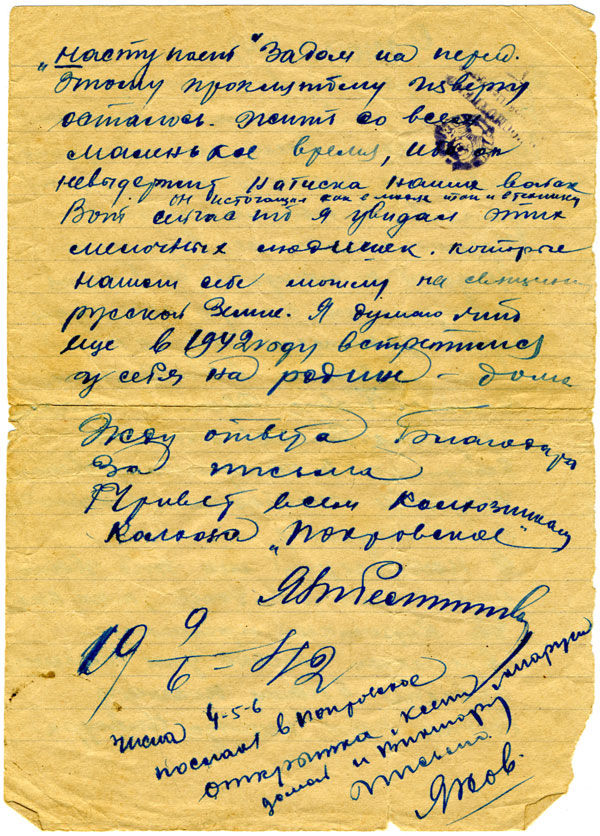 „Наступает" Задом на перед.
Этому проклятому извергу
осталось. жить со всем
маленькое время, ибо он
невыдержит натиска наших войск
Он истощал как в
Вот сейчас то я увидал этих
мелочных людишек. которые
нашли себе могилу на священ
русской Земле. Я думаю что
еще в 1942 году встретимся
у себя на родине – дома
Жду ответа Благодарю
За письма
Привет всем колхозникам
колхоза „Покровское"
19 9/6 – 42
Числа 4-5-6
послал в Покровское
открытка Кости Маруси
домой и Виктору
письмо.
Яков.